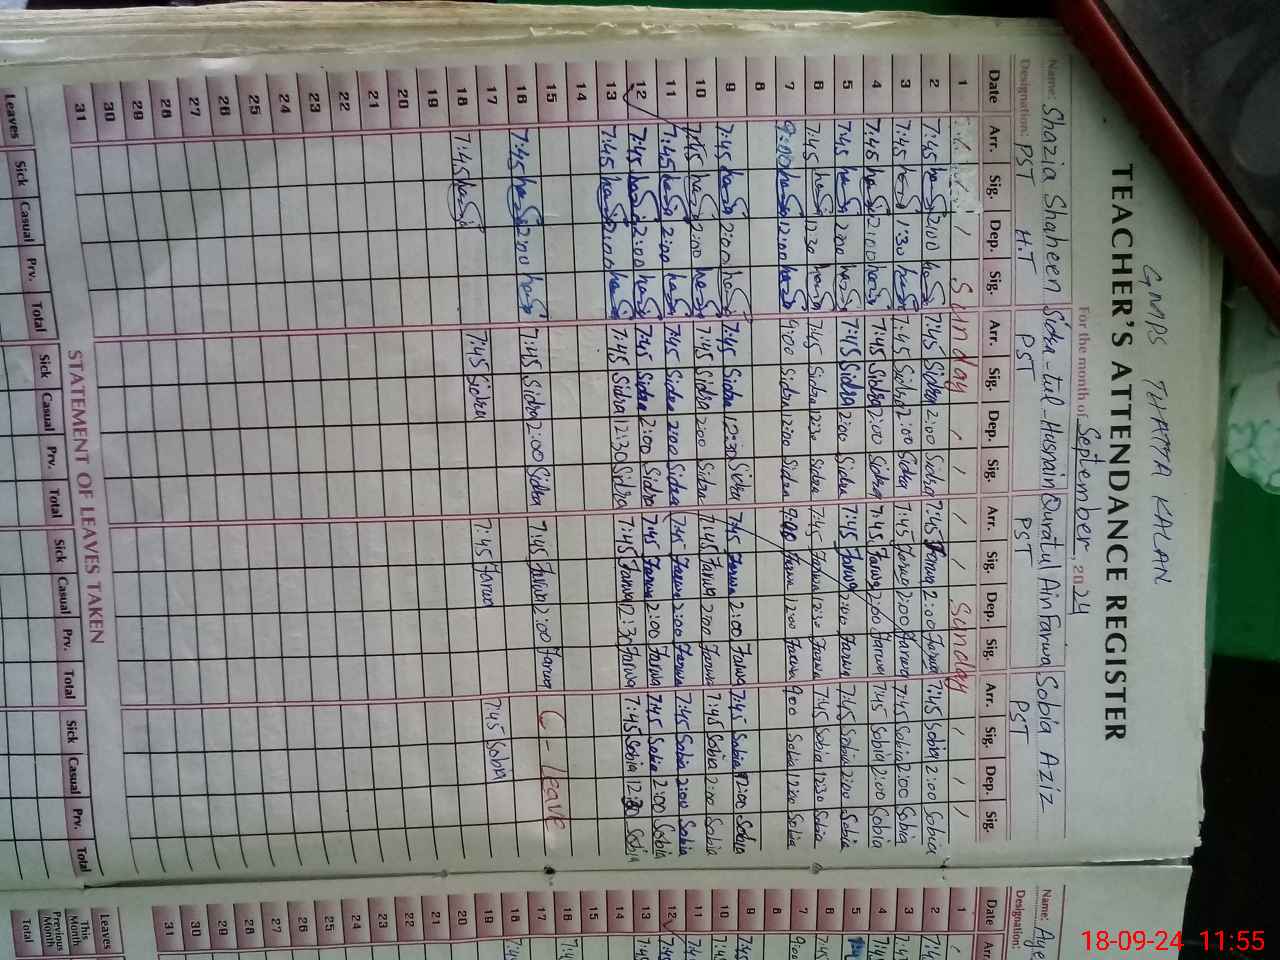 GMPS THATTA KALAN
TEACHER'S ATTENDANCE REGISTER
For the month of September, 2024
Name: Shazia Shaheen Sidra-tul-Husnain Quratul Ain Farwa Sobia Aziz
Designation: PST H.T PST PST PST
Date Arr. Sig. Dep. Sig. Arr. Sig. Dep. Sig. Arr. Sig. Dep. Sig. Arr. Sig. Dep. Sig.
1 Sunday Sunday
2 7:45 2:00 7:45 Sidra 2:00 Sidra 7:45 Farwa 2:00 Farwa 7:45 Sobia 2:00 Sobia
3 7:45 1:30 7:45 Sidra 2:00 Sidra 7:45 Farwa 2:00 Farwa 7:45 Sobia 2:00 Sobia
4 7:45 2:00 7:45 Sidra 2:00 Sidra 7:45 Farwa 2:00 Farwa 7:45 Sobia 2:00 Sobia
5 7:45 2:00 7:45 Sidra 2:00 Sidra 7:45 Farwa 2:00 Farwa 7:45 Sobia 2:00 Sobia
6 7:45 12:30 7:45 Sidra 12:30 Sidra 7:45 Farwa 12:30 Farwa 7:45 Sobia 12:30 Sobia
7 9:00 12:00 9:00 Sidra 12:00 Sidra 9:00 Farwa 12:00 Farwa 9:00 Sobia 12:00 Sobia
8
9 7:45 2:00 7:45 Sidra 12:30 Sidra 7:45 Farwa 2:00 Farwa 7:45 Sobia 12:00 Sobia
10 7:45 2:00 7:45 Sidra 2:00 Sidra 7:45 Farwa 2:00 Farwa 7:45 Sobia 2:00 Sobia
11 7:45 2:00 7:45 Sidra 2:00 Sidra 7:45 Farwa 2:00 Farwa 7:45 Sobia 2:00 Sobia
12 7:45 2:00 7:45 Sidra 2:00 Sidra 7:45 Farwa 2:00 Farwa 7:45 Sobia 2:00 Sobia
13 7:45 12:00 7:45 Sidra 12:30 Sidra 7:45 Farwa 12:30 Farwa 7:45 Sobia 12:30 Sobia
14
15
16 7:45 2:00 7:45 Sidra 2:00 Sidra 7:45 Farwa 2:00 Farwa C - Leave
17
18 7:45 7:45 Sidra 7:45 Farwa 7:45 Sobia
19
20
21
22
23
24
25
26
27
28
29
30
31
STATEMENT OF LEAVES TAKEN
Leaves Sick Casual Prv. Total Sick Casual Prv. Total Sick Casual Prv. Total Sick Casual Prv. Total
Name: Aye
Designation:
Date Arr.
1
2 7:4
3 7:4
4 7:4
5 7:4
6 7:45
7 9:00
8
9 7:45
10 7:45
11 7:4
12 7:45
13 7:45
14
15
16 7:4
17
18 7:4
19
20
21
22
23
24
25
26
27
28
29
30
31
Leaves
This Month
Previous Month
Total
18-09-24 11:55